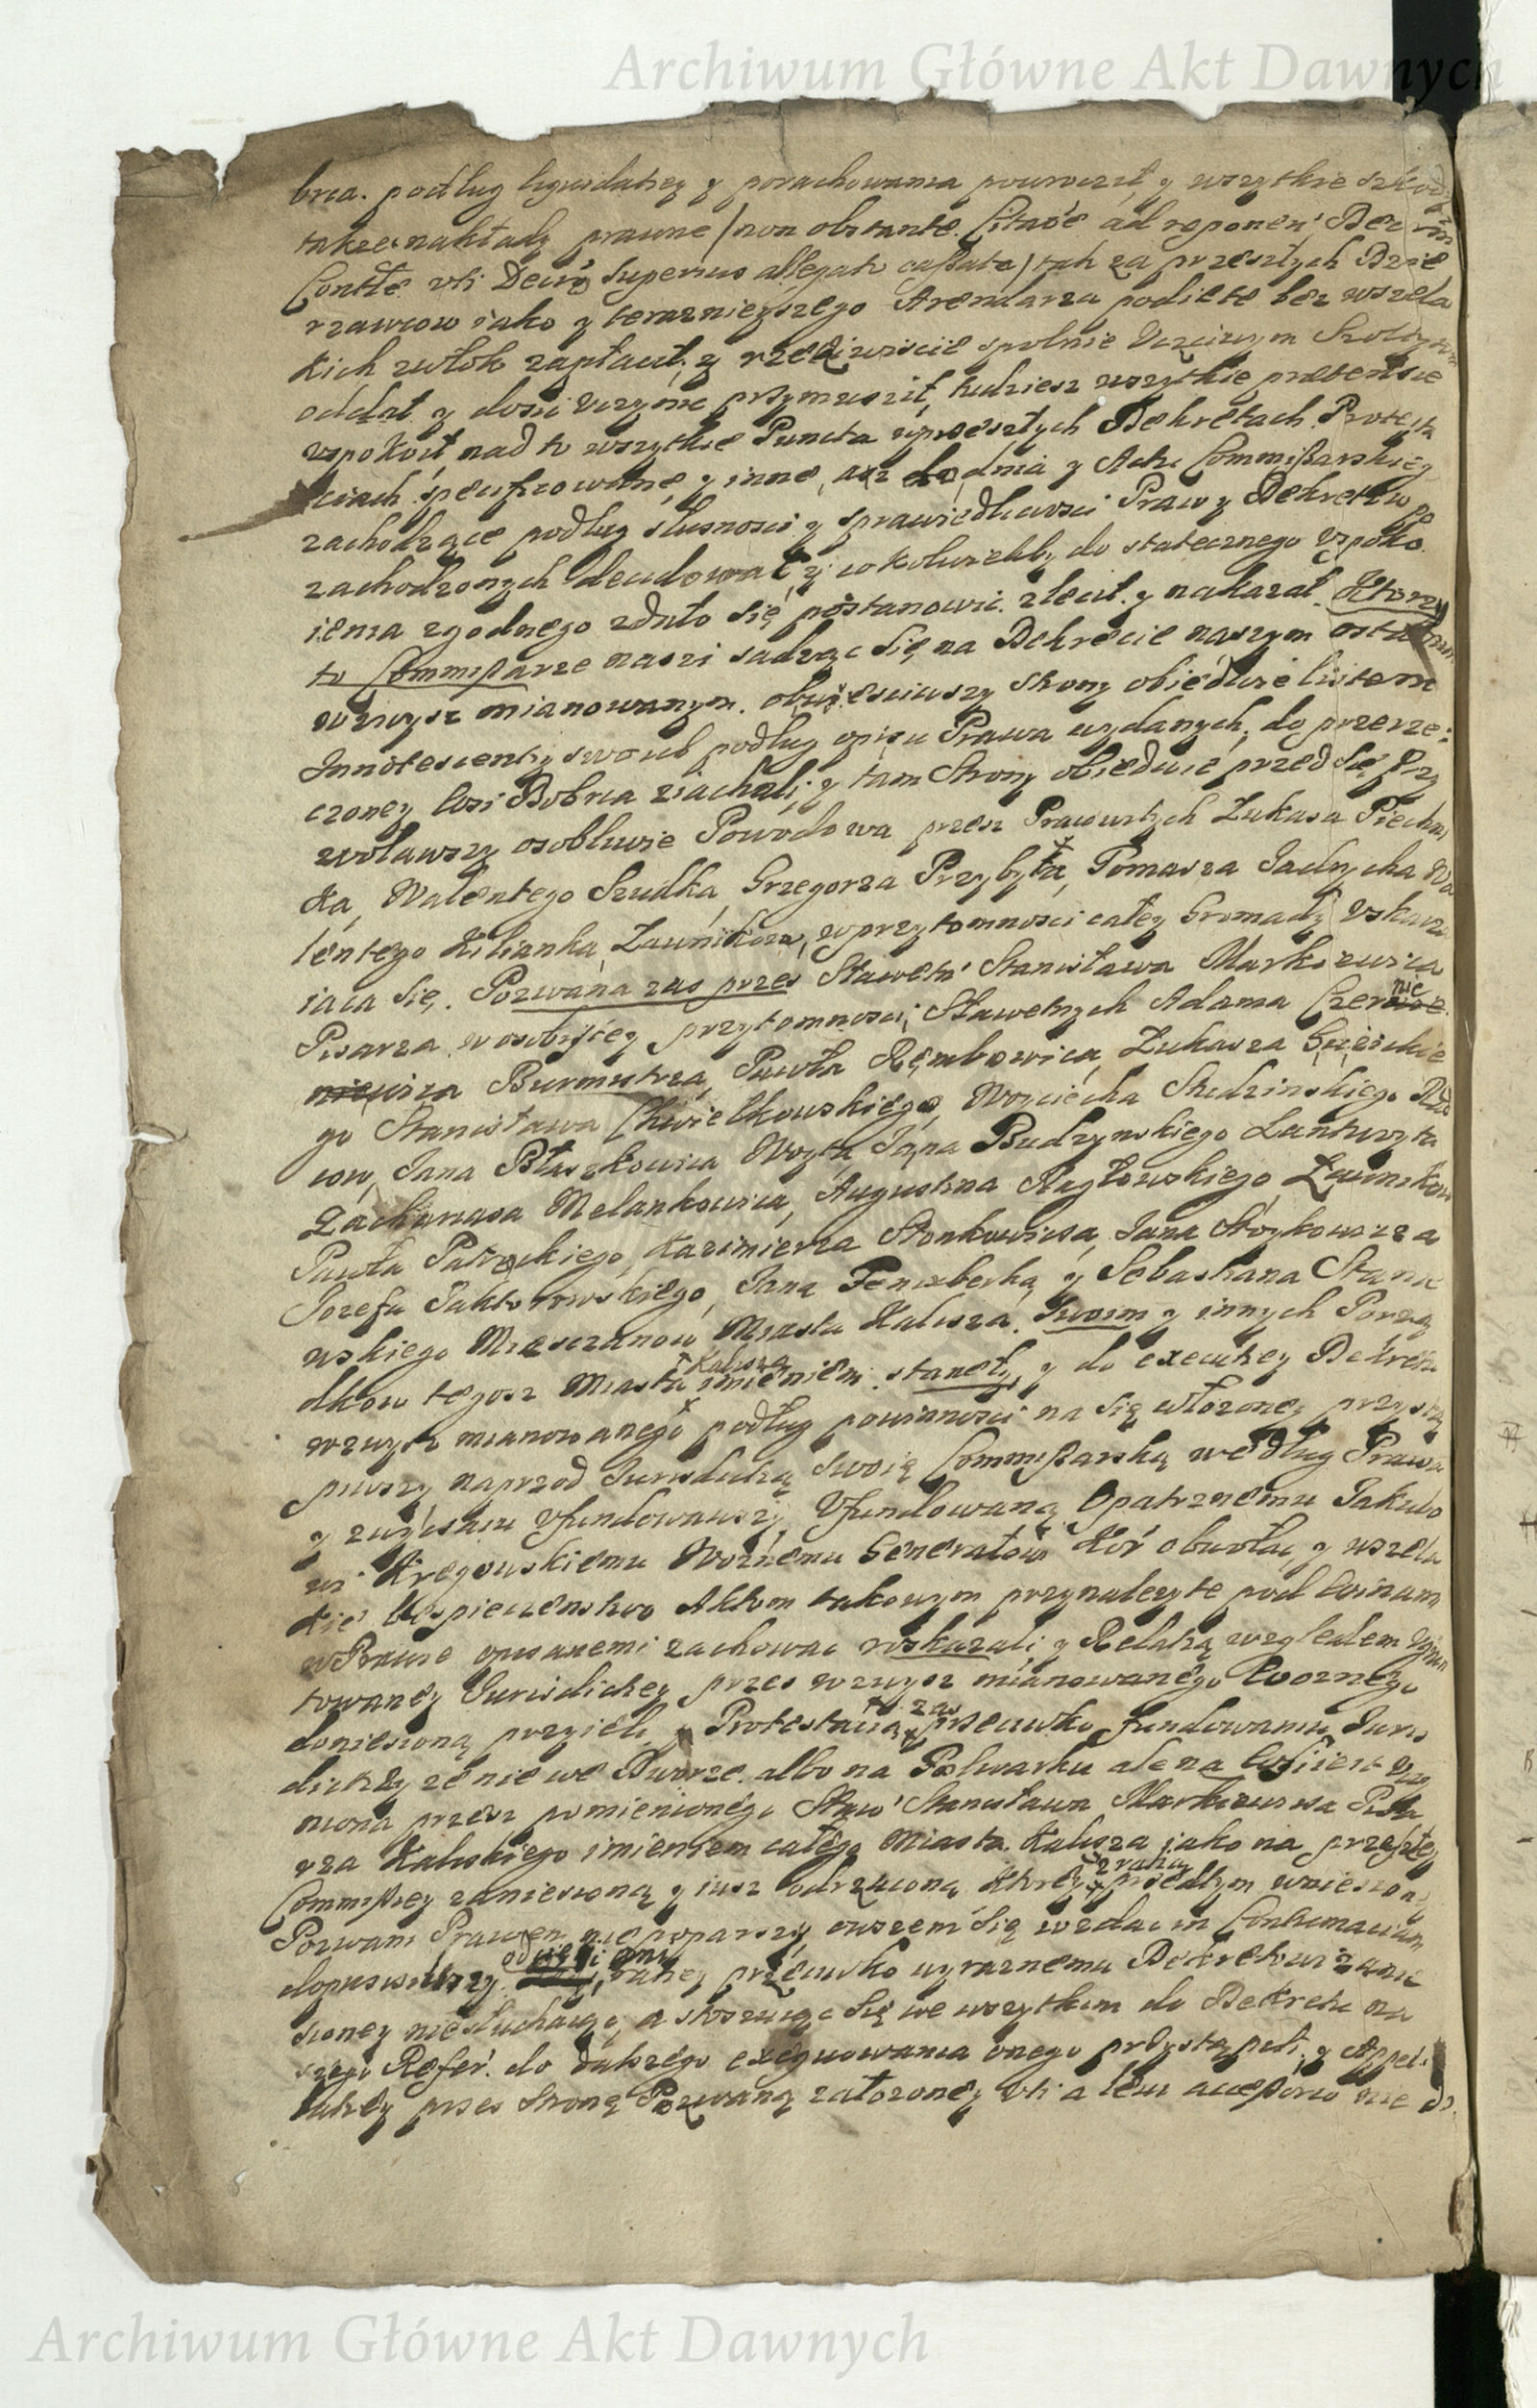 Archiwum Główne Akt Dawnych
brca. podług liquidatiey y porachowania powrocił, y wszytkie szkody
takze nakłady prawne / non obstante Citaõe ad reponen' Decretū
Contłe vti Decrō superius allegato cassata / tak za przeszłych Dzie
rzawcow iako y terazniejszego Arendarza podięte bez wszela
kich zwłok zapłacił, y rzeczywiscie spolnie Uczciwym Szoltysom
oddał y dosic uczynic przymusził, tudziesz wszytkie praetensie
uspokoił nad to wszytkie Puncta w przeszłych Dekretach Protesta
ciach specifikowane, y inne, asz do dnia y Actu Commissarskiey
zachodzące podług słusnosci y sprawiedliwosci Prawa y Dekretow po
zachodzonych decidował, y cokolwiekby do statecznego Uspoko
ienia zgodnego zdało się postanowic. zlecił. y nakazał. Ktorzy
to Commissarze naszi sadząc się na Dekrecie naszym ostatnim
wzwysz mianowanym. obwiesciwszy Strony obiedwie listem
Innotescentiy swoich podług opisu Prawa wydanych, do przerze:
czoney wsi Bobrca ziachali, y tam Strony obiedwie przed się Przy
woławszy osobliwie Powodowa przez Pracowitych Łukasza Piecha
ka, Walentego Szudka, Grzegorza Przybyła, Tomasza Jadnycha Wa
lentego Kilianka, Ławnikow, w przytomnosci całey Gromady Uskarza
iaca się. Pozwana zas przes Sławetn' Stanisława Markiewica
Pisarza w osobistey przytomnosci Sławetnych Adama Czernie
wica Burmistrza, Pawła Rembowica, Łukasza
go Stanisława Chwiełkowskiego, Woyciecha Studzinskiego Rad
cow, Jana Błaszkowica Woyta, Jana Budzynskiego Lantwoyta
Zachariasa Melankowica, Augustina Ragłowskiego, Ławnikow
Pawła Patrockiego, Kazimierza Stonkowicsa, Jana Stoykowicza
Jozefa Jaktorowskiego, Jana Fenixberka y Sebastiana Stani
wskiego Miesczanow Miasta Kalisza. Swoim y innych Porzą
dkow tegosz Miasta Kalisza imieniem. stanęły, y do executiey Dekretu
wzwysz mianowanego podług powinnosci na się włożoney przystą
piwszy naprzod Jurisdictią Swoią Commissarską według Prawa
y zwyczaiu Ufundowawszy, Ufundowaną Opatrznemu Jakubo
wi Kręgowskiemu Woznemu Generałowi Kōr obwołac y wszela
kie bespieczenstwo Aktom takowym przynalezyte pod winami
w Prawie opisanemi zachowac wskazali, y Relatią względem Ugrun
towaney Jurisdictiey przes wzwysz mianowanego Woznego
doniesioną przyieli y Protestatią tę zas przeciwko fundowaniu Juris
dictiey ze nie we Dworze. albo na Polwarku ale na Wsi iest Uczy
niona przesz pomienionego Sław' Stanisława Markiewica Pisa
rza Kaliskiego imieniem całego Miasta Kalisza iako na przeszłey
Commissiey zaniesioną y iusz odrzuconą, Ktorey z racij przedtym wniesioney
Pozwani Prawem nie poparszy, owszem się wzdac in Contumaciam
dopusciwszy. odrzucili onę, raney przeciwko wyraznemu Dekretowi zanie
sioney niesłuchaiąc, a stosuiąc się we wszytkim do Dekretu na
szego Refer. do dalszego exequowania onego przystąpili, y Appel
latiey przes Stronę Pozwaną założoney vti a leui accessorio nie do
Archiwum Główne Akt Dawnych